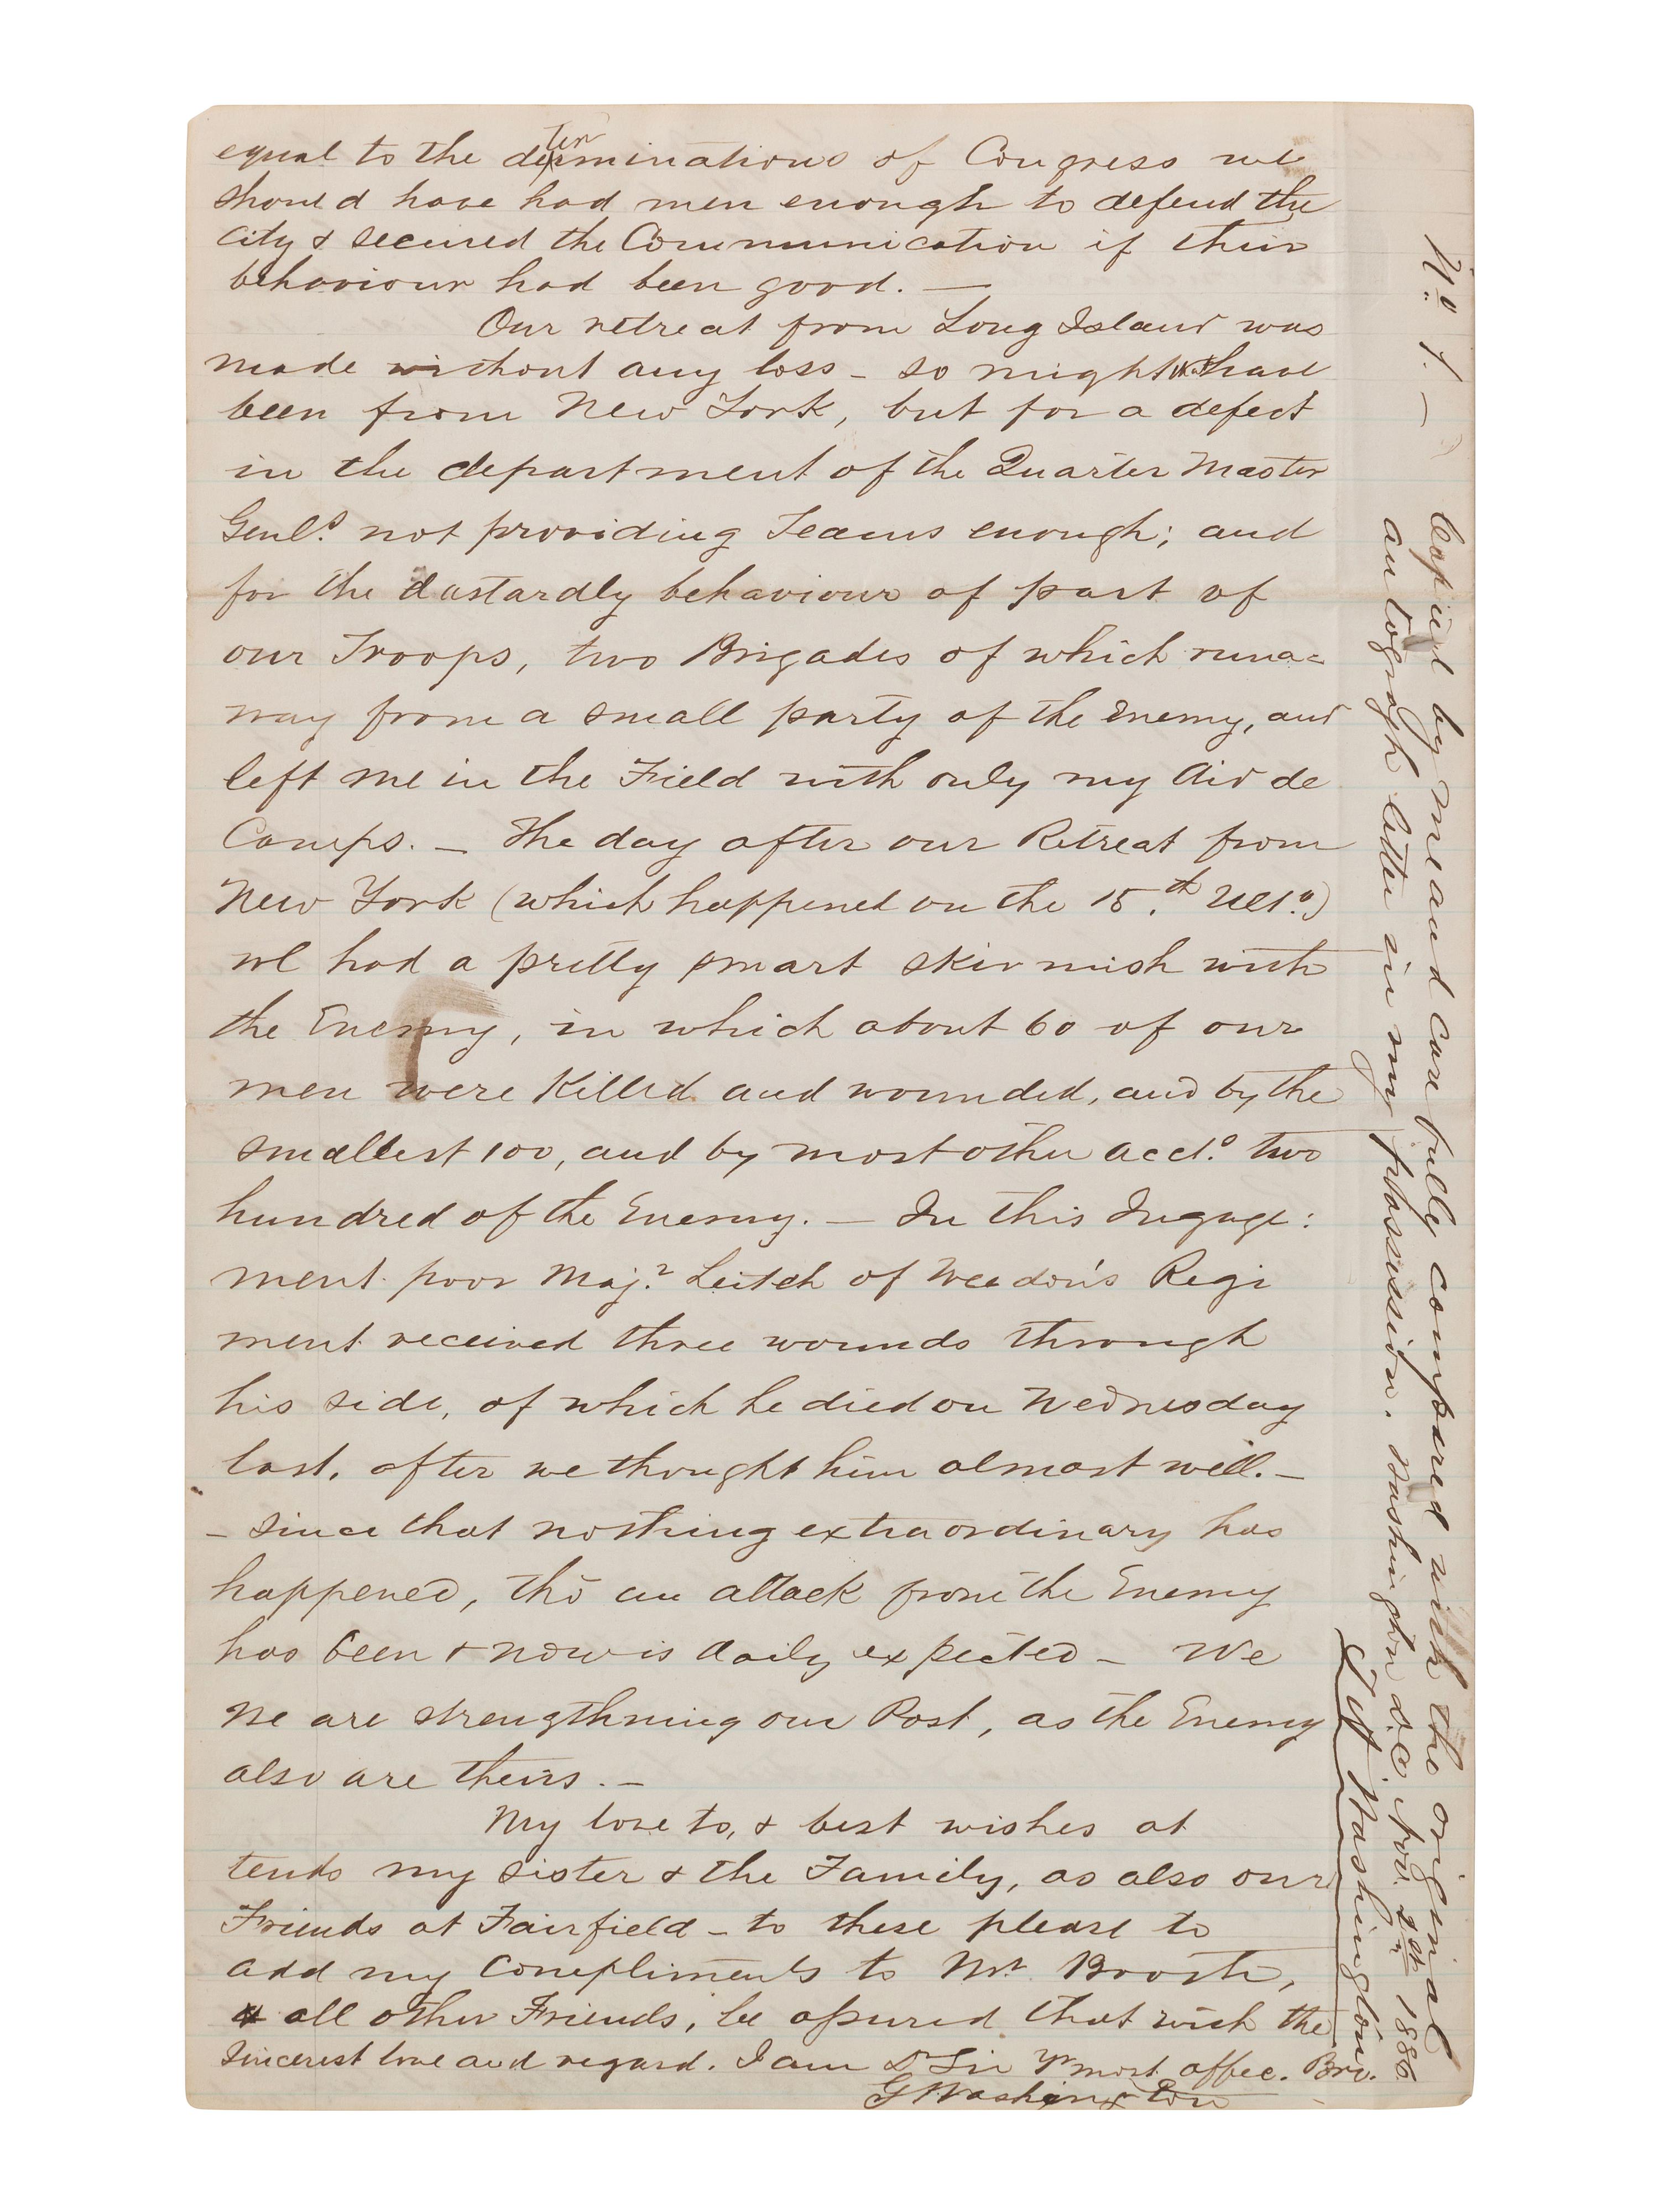 equal to the determinations of Congress we
should have had men enough to defend the
City & secured the Communication if their
behaviour had been good. —
Our retreat from Long Island was
made without any loss – so might that have
been from New York, but for a defect
in the department of the Quarter Master
Genls. not providing Teams enough; and
for the dastardly behaviour of part of
our Troops, two Brigades of which runa=
way from a small party of the Enemy, and
left me in the Field with only my Aid de
Camps. – The day after our Retreat from
New York (which happened on the 15.th Ulto.)
we had a pretty smart skirmish with
the Enemy, in which about 60 of our
men were Killed and wounded, and by the
smallest 100, and by most other acct.s two
hundred of the Enemy. – In this Ingage:
ment poor Maj.r Leitch of Weedon's Regi
ment received three wounds through
his side, of which he died on Wednesday
last, after we thought him almost well. –
– Since that nothing extraordinary has
happened, tho an attack from the Enemy
has been & now is daily expected – We
We are strengthning our Post, as the Enemy
also are theirs. –
My love to, & best wishes at
tends my sister & the Family, as also our
Friends at Fairfield – to these please to
add my Compliments to Mr. Booth,
& all other Friends, be assured that with the
sincerest love and regard. I am Dr Sir Yr most affec. Bro.
GWashington
No 1. —
Copied by me and carefully compared with the original
autograph letter in my possession. Washington D.C. 1886
Washington